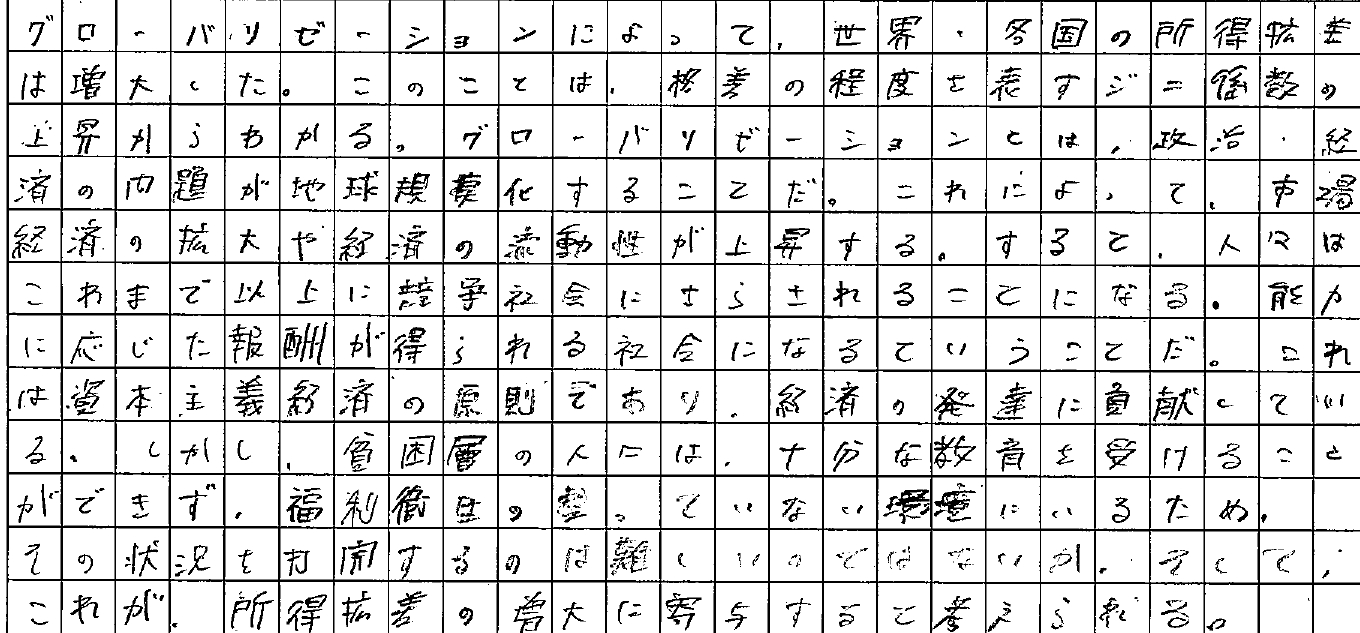 グローバリゼーションによって、世界・各国の所得拡差
は増大した。このことは、格差の程度を表すジニ係数の
上昇からわかる。グローバリゼーションとは、政治・経
済の内題が地球規模化することだ。これによって、市場
経済の拡大や経済の流動性が上昇する。すると、人々は
これまで以上に競争社会にさらされることになる。能力
に応じた報酬が得られる社会になるということだ。これ
は資本主義経済の原則であり、経済の発達に貢献してい
る。しかし、貧困層の人には、十分な教育を受けること
ができず、福利衛生の整っていない環境にいるため、
その状況を打開するのは難しいのではないか。そして、
これが、所得拡差の増大に寄与すると考えられる。